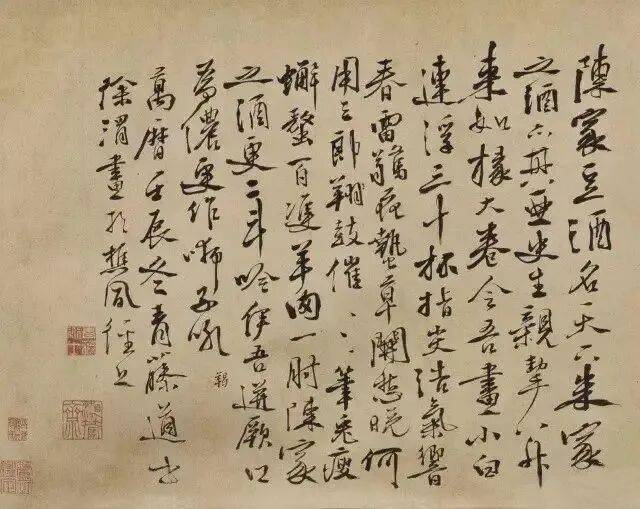 陳家豆酒名天下朱家
之酒亦其亞史生親挈八升
来如椽大卷令吾畫小白
連浮三十杯指尖浩氣響
春雷驚花蟄草開愁晚何
用三郎羯鼓催〻〻筆兔瘦
蠏螯百雙羊肉一肘陳家
之酒更二斗吟伊吾迸厥口
為儂更作獅子吼
羯
萬曆壬辰冬青藤道士
徐渭畫於樵風徑上